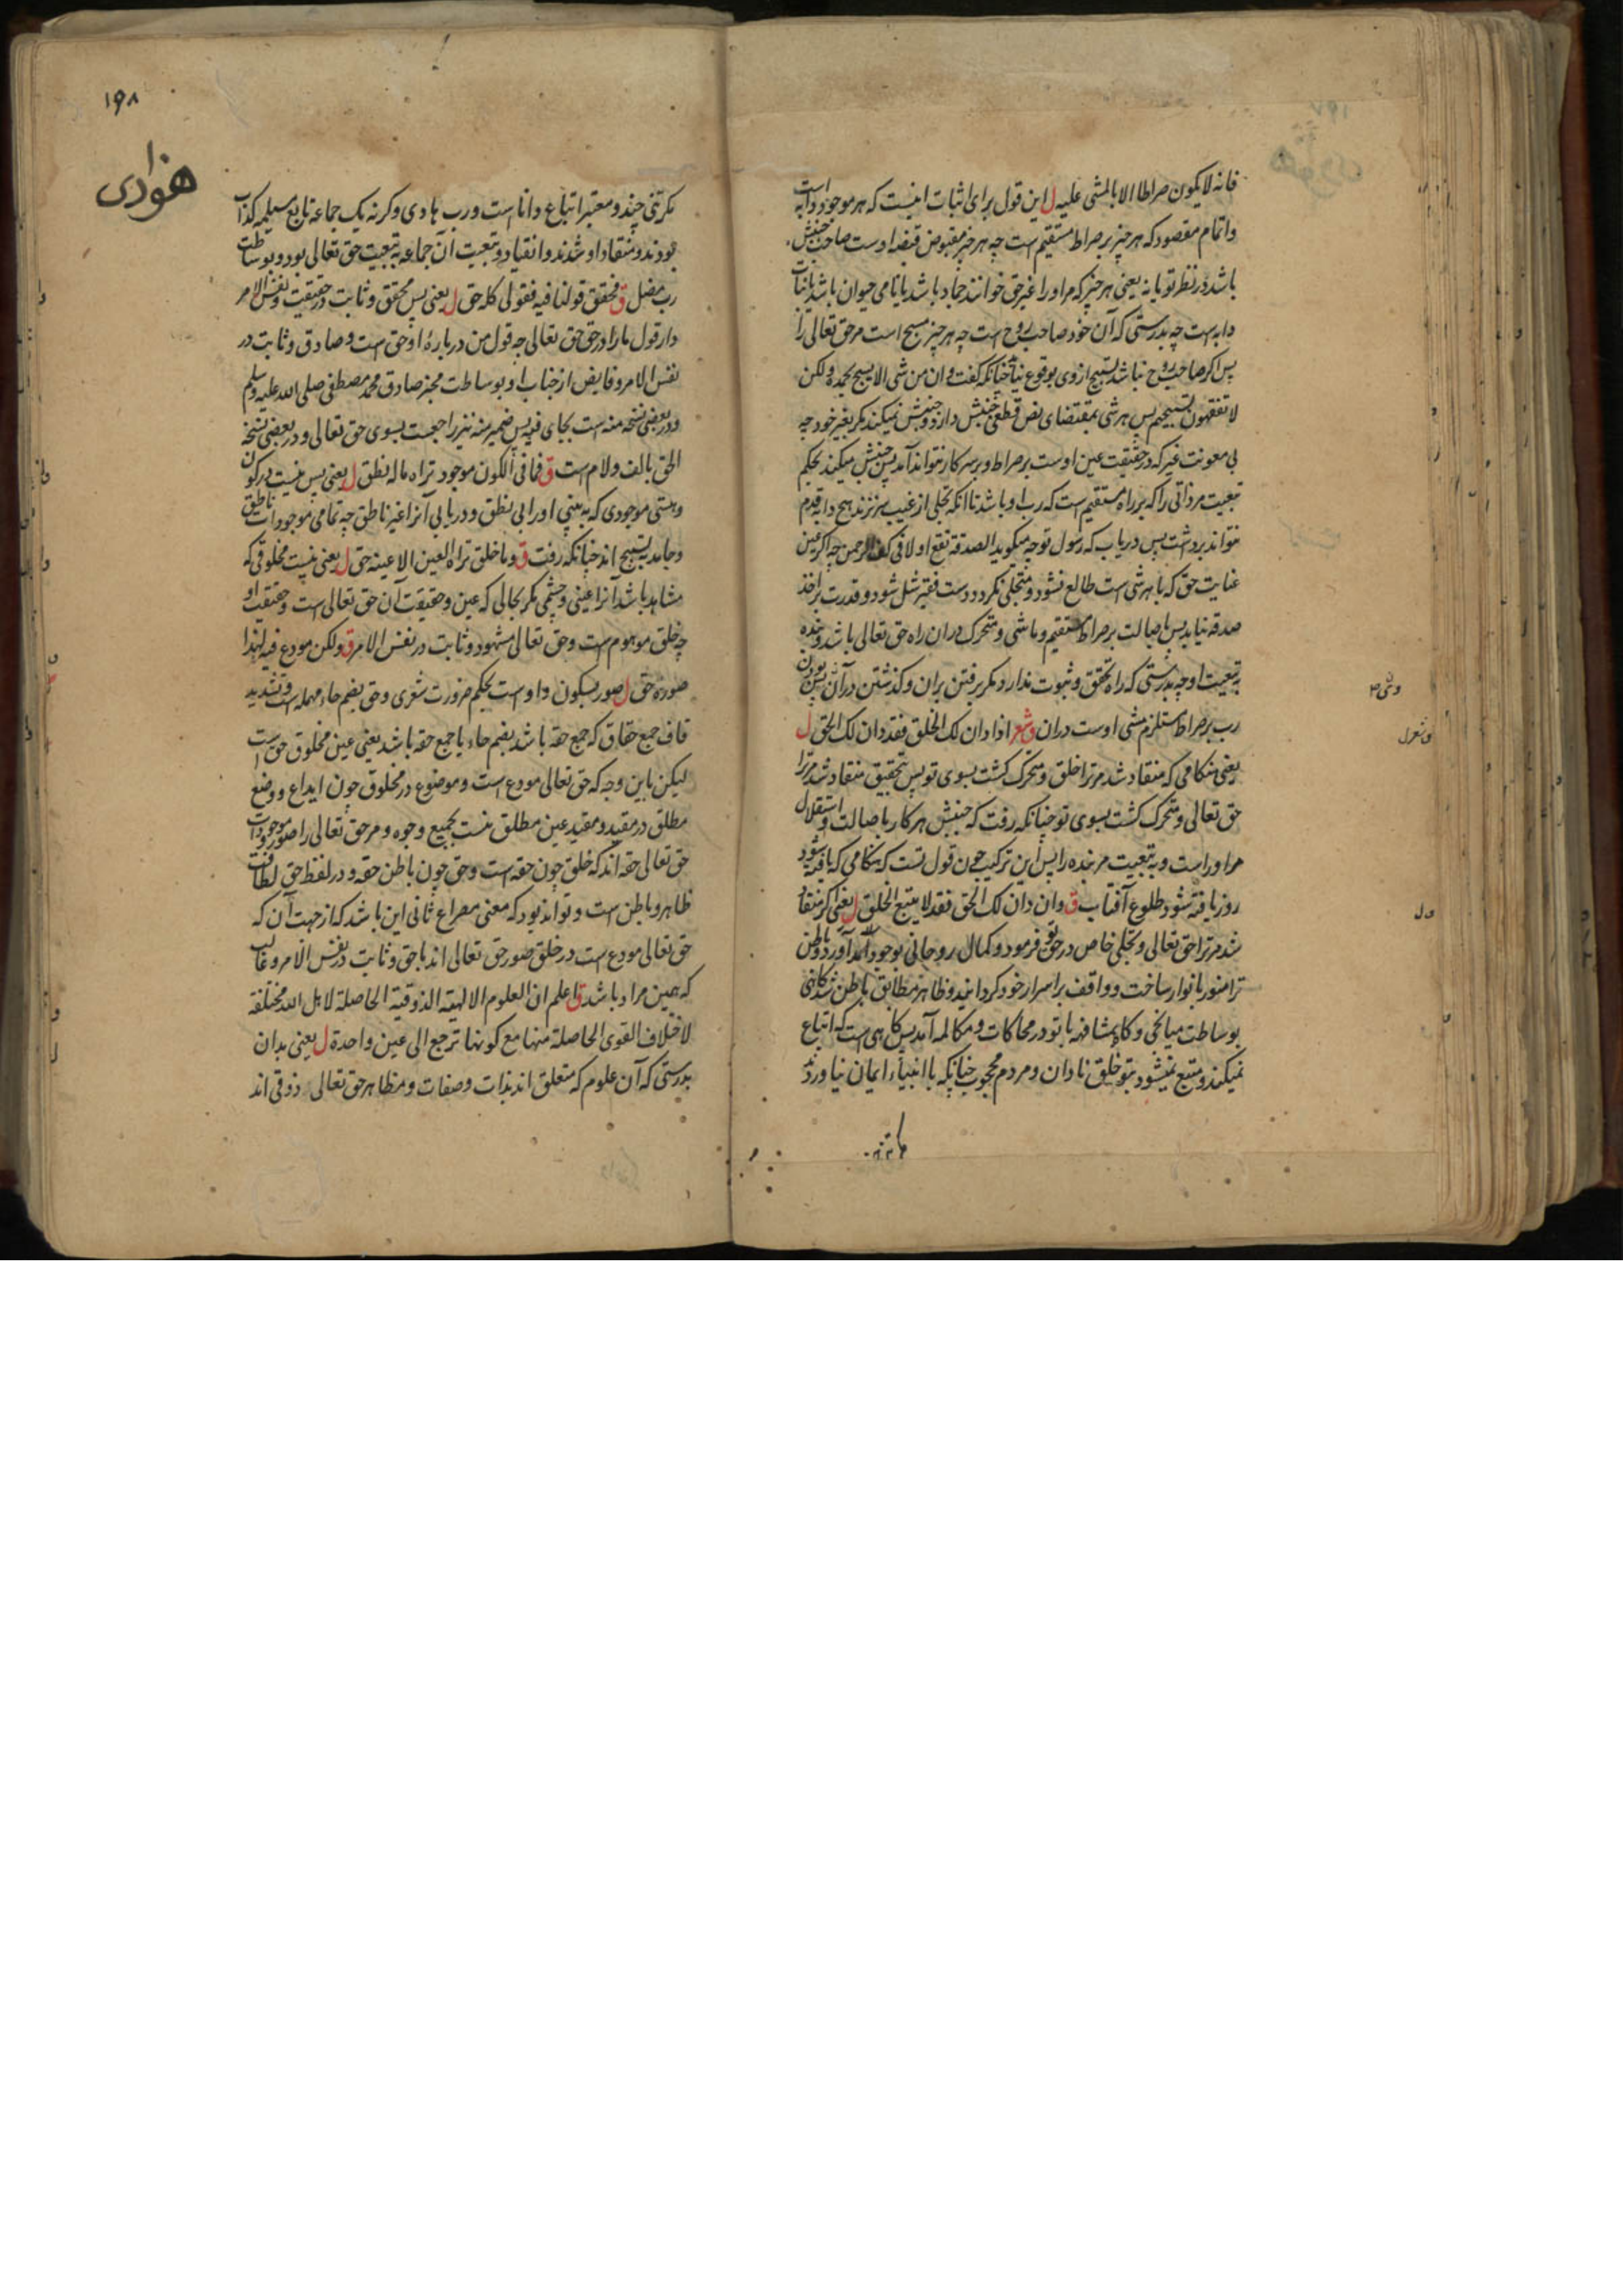 فانه لا یکون صراطا الا بالمشی علیه ل این قول برای اثبات اینست که هر موجود دابه است
واتمام مقصود که هر چیز بر صراط مستقیم است چه هر چیز مقبوض قبضه اوست صاحب جنبش
باشد در نظر تو یا نه یعنی هر چیز که مر او را غیر حق خوانند جماد باشد یا نامی حیوان باشد یا نبات
دابه است چه بدرستی که آن خود صاحب روح است چه هر چیز مسبح است مر حق تعالی را
پس اگر صاحب روح نباشد تسبیح ازوی بوقوع نیاید چنانکه گفت وان من شی الا یسبح بحمده ولکن
لا تفقهون تسبیحهم پس هر شی بمقتضای نص قطعی جنبش دارد و جنبش نمیکند مگر بغیر خود چه
بی معونت غیر که در حقیقت عین اوست بر صراط و بر سر کار نتواند آمد پس جنبش میکند بحکم
تبعیت مر ذاتی را که بر راه مستقیم است که رب او باشد تا انکه تجلی از غیب سر نزند هیچ دابه قدم
نتواند برداشت پس دریاب که رسول تو چه میگوید الصدقة تقع اولا فی کف الرحمن چه اگر عین
عنایت حق که با هر شی است طالع نشود و متجلی نکردد دست فقیر شل شود و قدرت بر اخذ
صدقه نیابد پس باصالت بر صراط مستقیم و ماشی و متحرک دران راه حق تعالی باشد و بنده
به تبعیت او چه بدرستی که راه تحقق و ثبوت ندارد مکر برفتن بران و کذشتن در آن پس بودن
رب بر صراط مستلزم مشی اوست دران ق شعر اذا دان لک الخلق فقد دان لک الحق ل
یعنی هنکامی که منقاد شد مر ترا خلق و متحرک کشت بسوی تو پس بتحقیق منقاد شد مر ترا
حق تعالی و متحرک کشت بسوی تو چنانکه رفت که جنبش هر کار باصالت و استقلال
مر اوراست و به تبعیت مر بنده را پس این ترکیب چون قول تست که هنکامی که یافته شود
روز یافته شود طلوع آفتاب ق وان دان لک الحق فقد لا یتبع الخلق ل یعنی اگر منقاد
شد مر ترا حق تعالی و تجلی خاص در حق تو فرمود و کمال روحانی بوجود آمد آورد و باطن
ترا منور بانوار ساخت و واقف بر اسرار خود کردانید و ظاهر مطابق باطن شد کاهی
بوساطت میانجی و کاه بمشافهه با تو در محاکات و مکالمه آمد پس کاهی است که اتباع
نمیکند و متبع نمیشود بتو خلق نادان و مردم محجوب چنانکه با انبیاء ایمان نیاوردند
۱۹۸
هوادی
مکر تنی چند و معتبر اتباع داناست و رب هادی و کرنه یک جماعه تابع مسیلمه کذاب
بودند و منقاد او شدند وانقیاد و تبعیت آن جماعه به تبعیت حق تعالی بود و بوساطت
رب مضل ق فحقق قولنا فیه فقولی کله حق ل یعنی پس محقق و ثابت در حقیقت و نفس الامر
دار قول ما را در حق حق تعالی چه قول من درباره او حق است و صادق و ثابت در
نفس الامر و فایض از جناب او بوساطت مخبر صادق محمد مصطفی صلی الله علیه وسلم
و در بعضی نسخه منه است بجای فیه پس ضمیر منه نیز راجعست بسوی حق تعالی و در بعضی نسخه
الحق بالف ولام است ق فما فی الکون موجود تراه ما له نطق ل یعنی پس نیست در کون
و هستی موجودی که به بینی او را بی نطق و دریابی آنرا غیر ناطق چه تمامی موجودات ناطق
و حامد به تسبیح اند چنانکه رفت ق وما خلق تراه العین الا عینه حق ل یعنی نیست مخلوقی که
مشاهد باشد آنرا عینی و چشمی مکر بحالی که عین و حقیقت آن حق تعالی است و حقیقت او
چه خلق موهوم است و حق تعالی مشهود و ثابت در نفس الامر ق ولکن مودع فیه لهذا
صوره حق ل صور بسکون واو است بحکم ضرورت شعری و حق بضم حاء مهمله است و تشدید
قاف جمع حقاق که جمع حقه باشد بضم حاء یا جمع حقه باشد یعنی عین مخلوق حق است
لیکن باین وجه که حق تعالی مودع است و موضوع در مخلوق چون ایداع و وضع
مطلق در مقید و مقید عین مطلق نیست بجمیع وجوه و مر حق تعالی را صور موجودات
حق تعالی حقه اند که خلق چون حقه است و حق چون باطن حقه و در لفظ حق لطافت
ظاهر و باطن است و تواند بود که معنی مصراع ثانی این باشد که از جهت آن که
حق تعالی مودع است در خلق صور حق تعالی اند یا حق و ثابت در نفس الامر و غالب
که همین مراد باشد ق اعلم ان العلوم الالهیة الذوقیة الحاصلة لاهل الله مختلفة
لاختلاف القوی الحاصلة منها مع کونها ترجع الی عین واحدة ل یعنی بدان
بدرستی که آن علوم که متعلق اند بذات و صفات و مظاهر حق تعالی ذوقی اند